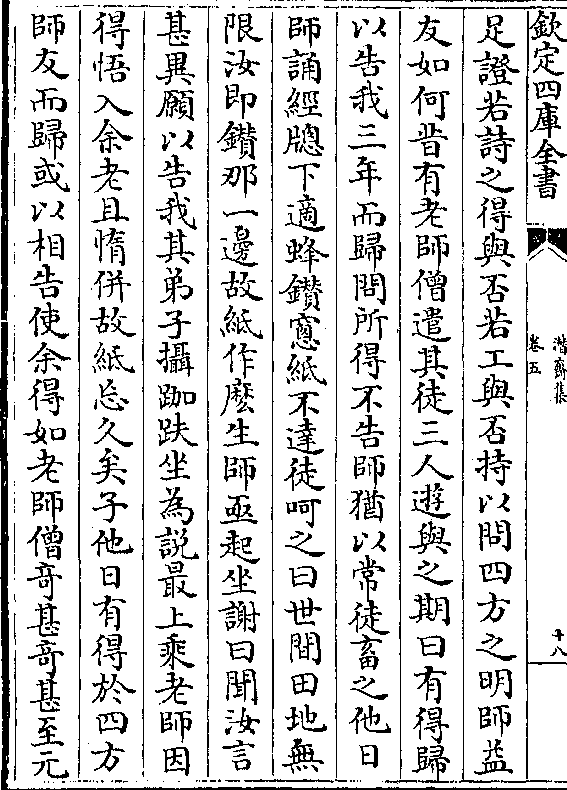 欽定四庫全書
潛齋集
卷五
十八
足證若詩之得與否若工與否持以問四方之明師益
友如何昔有老師僧遣其徒三人遊與之期曰有得歸
以告我三年而歸問所得不告師猶以常徒畜之他日
師誦經牕下適蜂鑽窓紙不達徒呵之曰世間田地無
限汝即鑽那一邊故紙作麽生師亟起坐謝曰聞汝言
甚異願以告我其弟子攝跏趺坐為説最上乘老師因
得悟入余老且惰併故紙忘久矣子他日有得於四方
師友而歸或以相告使余得如老師僧竒甚竒甚至元